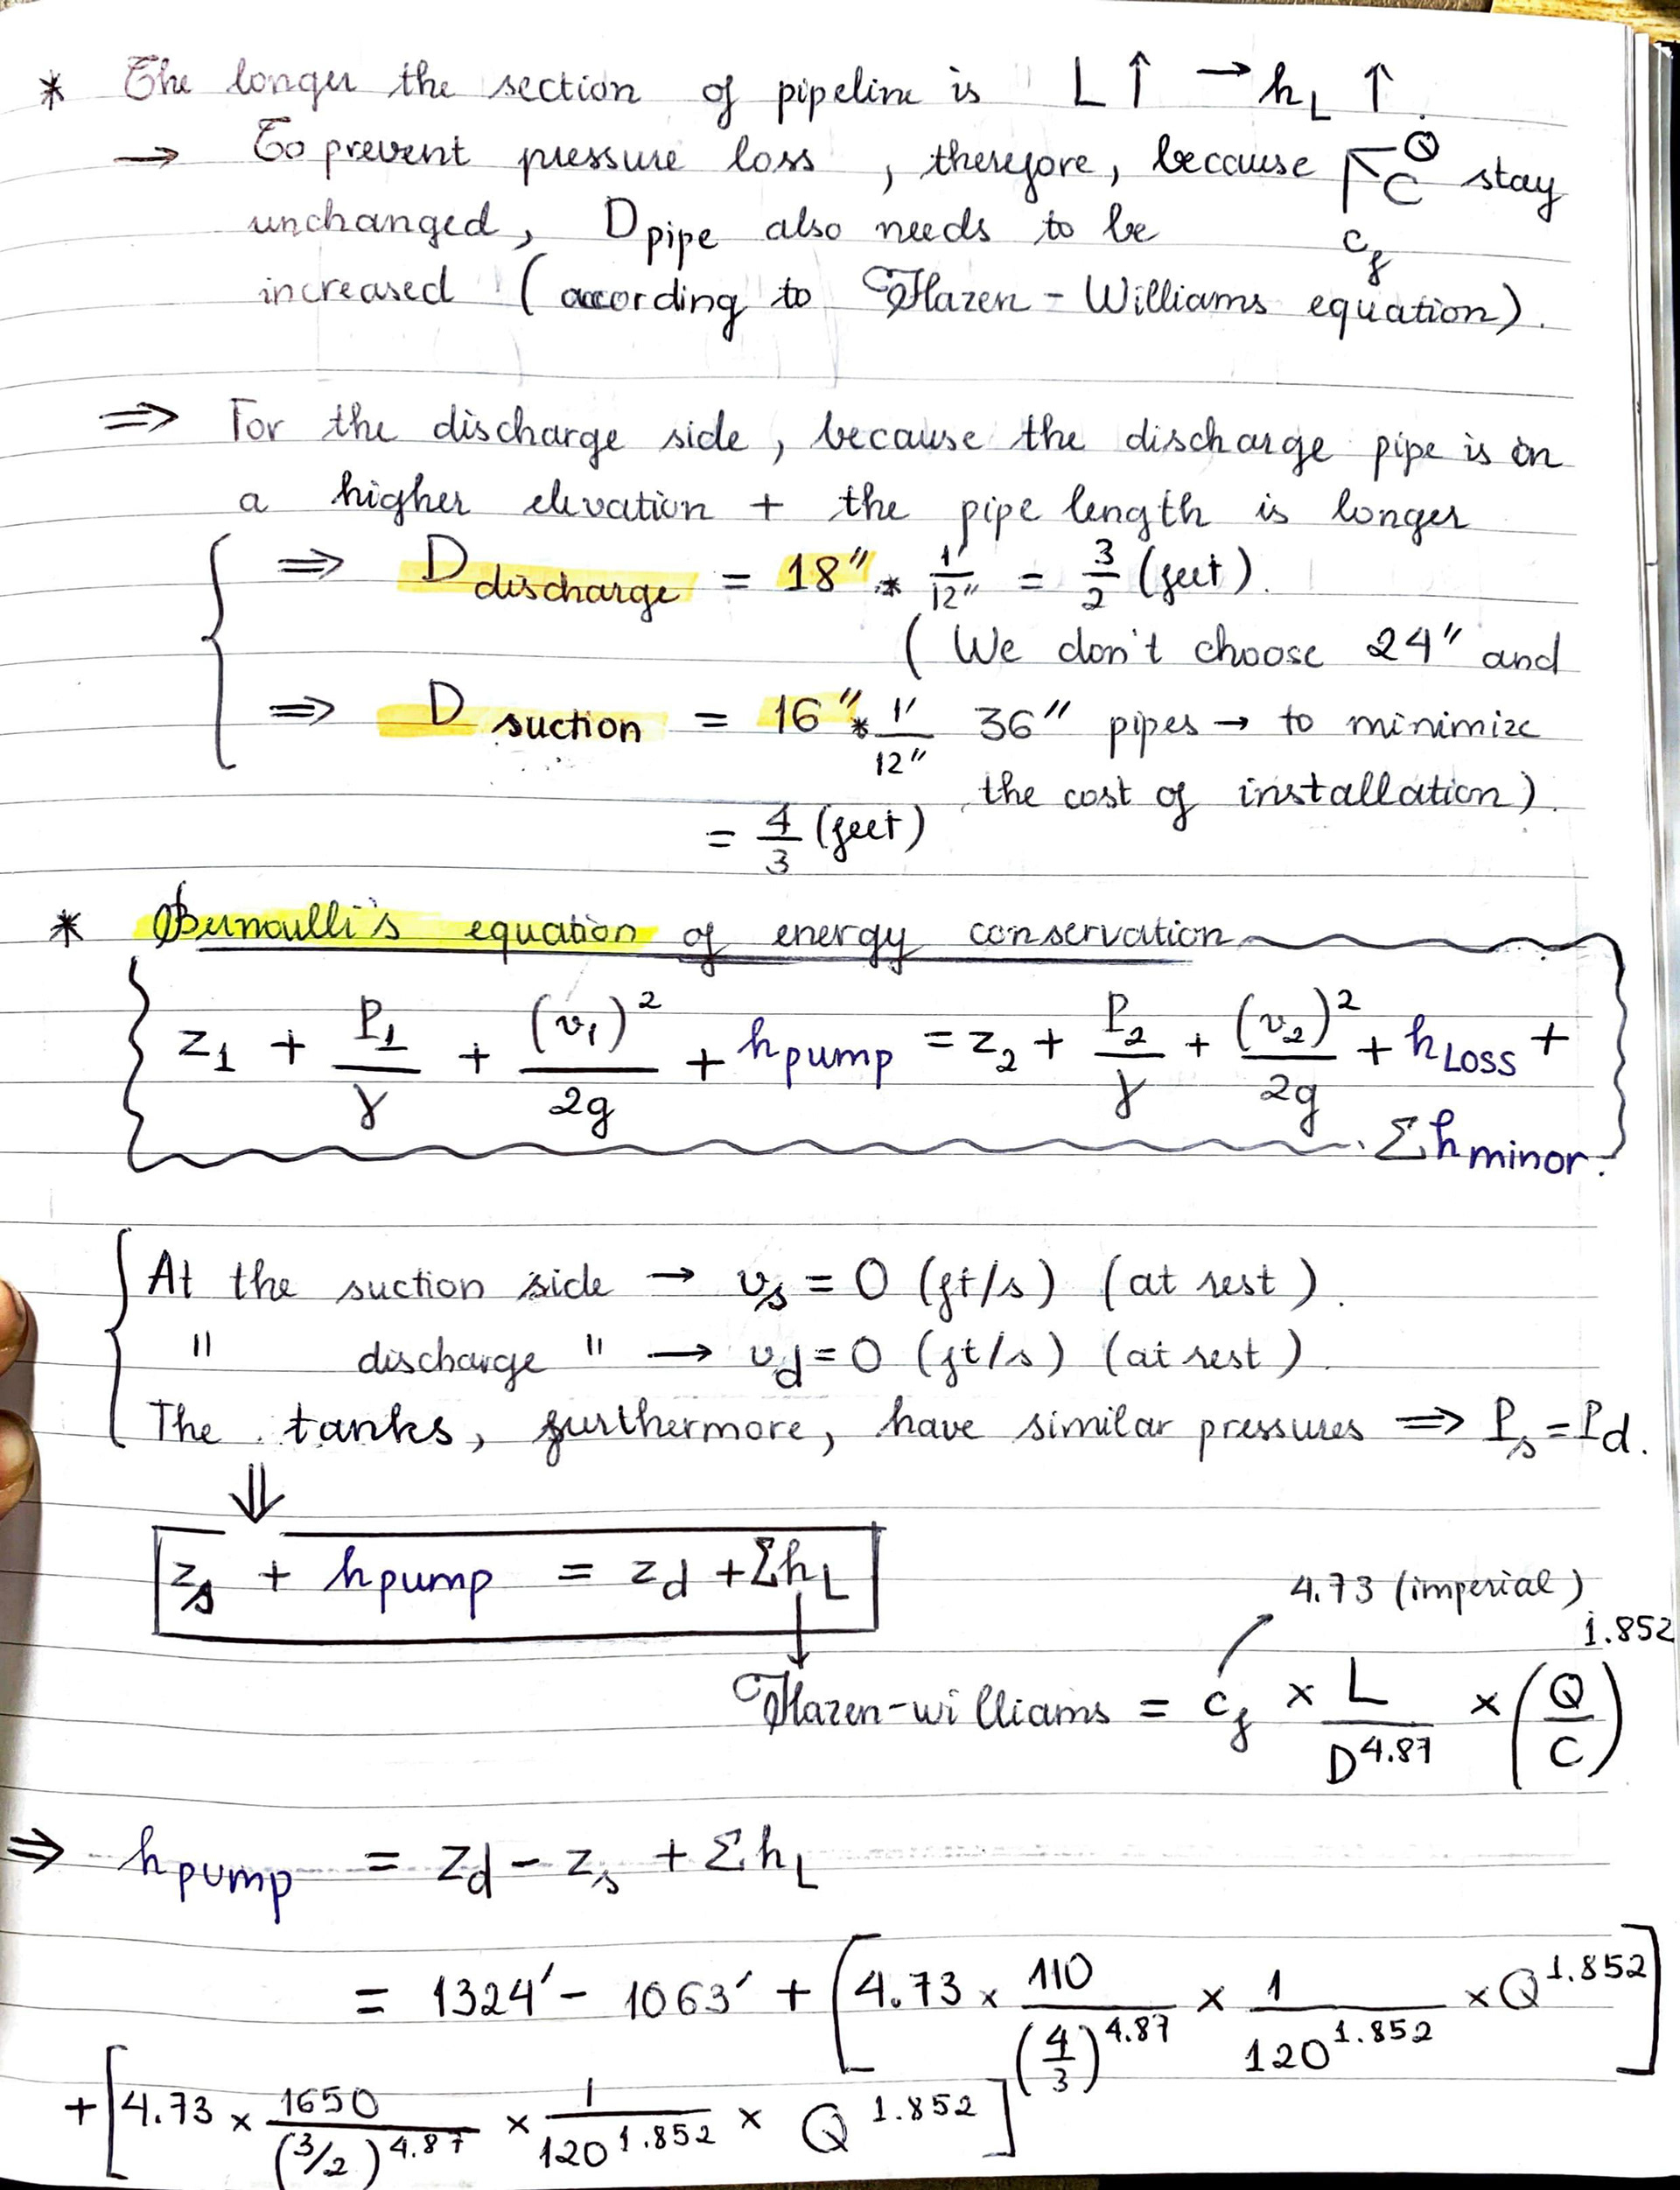 * The longer the section of pipeline is L ↑ → h_L ↑.
→ To prevent pressure loss, therefore, because Q C c_f stay
unchanged, D pipe also needs to be
increased (according to Hazen-Williams equation).
⇒ For the discharge side, because the discharge pipe is on
a higher elevation + the pipe length is longer
⇒ D discharge = 18" * 1'/12" = 3/2 (feet).
(We don't choose 24" and
⇒ D suction = 16" * 1'/12" 36" pipes → to minimize
the cost of installation).
= 4/3 (feet)
* Bernoulli's equation of energy conservation
z_1 + P_1/γ + (v_1)^2/2g + h pump = z_2 + P_2/γ + (v_2)^2/2g + h Loss +
Σh minor.
At the suction side → v_s = 0 (ft/s) (at rest).
" discharge " → v_d = 0 (ft/s) (at rest).
The tanks, furthermore, have similar pressures ⇒ P_s = P_d.
⇓
z_s + h pump = z_d + Σh_L
4.73 (imperial)
Hazen-williams = c_f × L/D^4.87 × (Q/C)^1.852
⇒ h pump = z_d - z_s + Σh_L
= 1324' - 1063' + [4.73 × 110/(4/3)^4.87 × 1/120^1.852 × Q^1.852]
+ [4.73 × 1650/(3/2)^4.87 × 1/120^1.852 × Q^1.852]